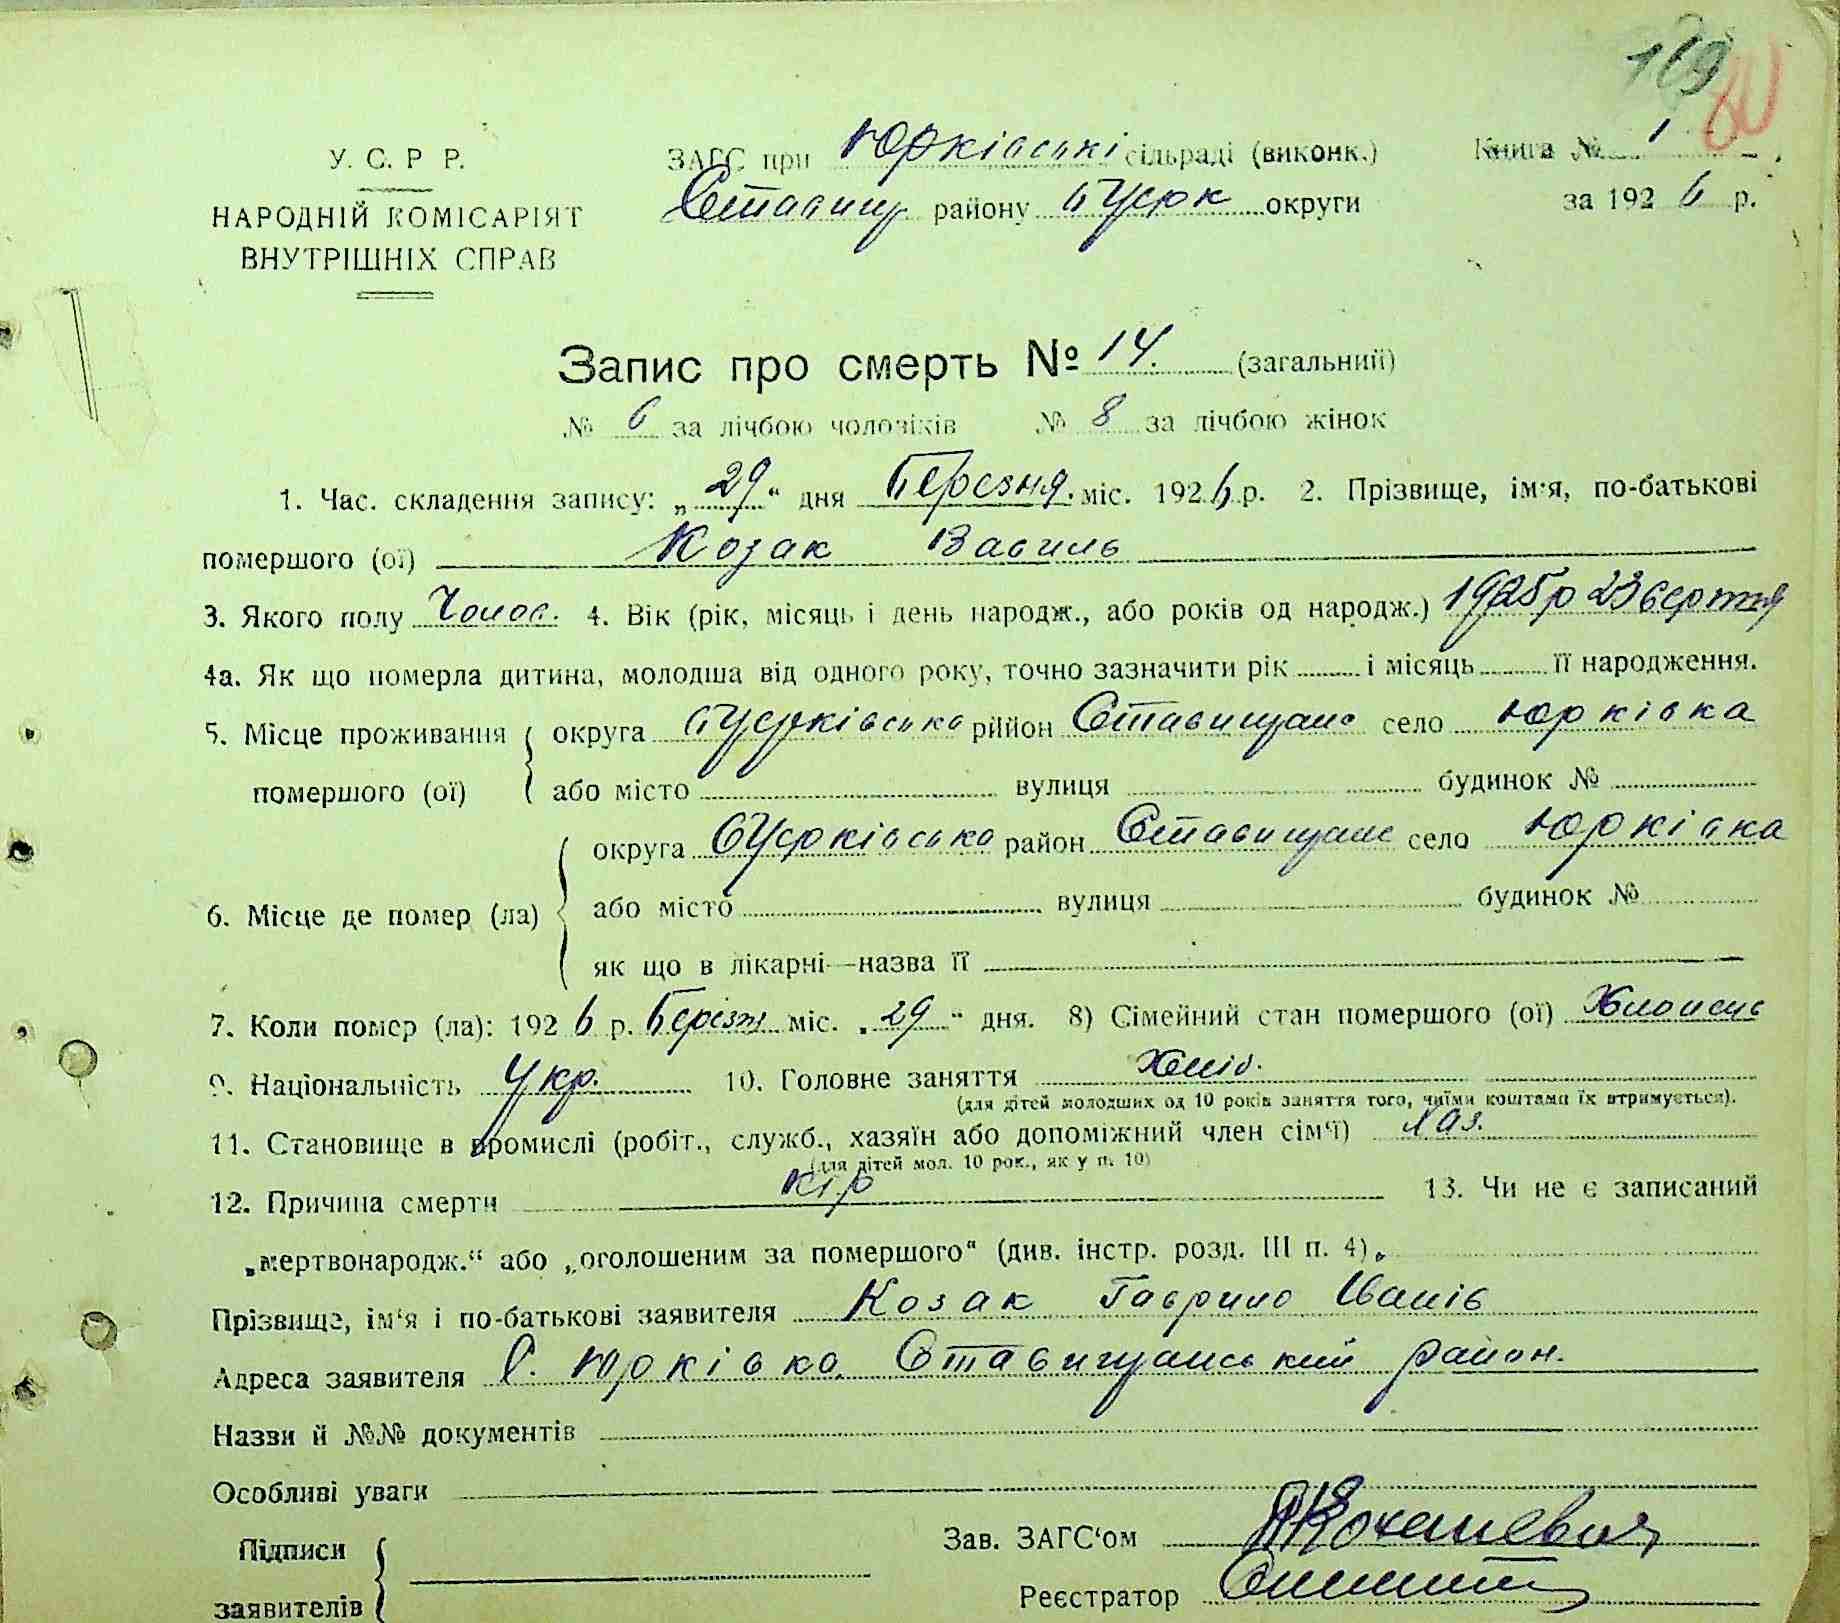 169 80
У. С. Р Р.
НАРОДНІЙ КОМІСАРІЯТ
ВНУТРІШНІХ СПРАВ
ЗАГС при Юрківські сільраді (виконк.) Книга № 1
Ставищ району округи за 1926 р.
Запис про смерть № 14. (загальний)
№ 6 за лічбою чоловіків № 8 за лічбою жінок
1. Час. складення запису: „29“ дня Березня. міс. 1926 р. 2. Прізвище, ім'я, по-батькові
помершого (ої) Козак Василь
3. Якого полу Чолов. 4. Вік (рік, місяць і день народж., або років од народж.) 1925р 23 серпня
4а. Як що померла дитина, молодша від одного року, точно зазначити рік і місяць її народження.
5. Місце проживання округа район Ставищанс село Юрківка
помершого (ої) або місто вулиця будинок №
округа район Ставищанс село Юрківка
6. Місце де помер (ла) або місто вулиця будинок №
як що в лікарні—назва її
7. Коли помер (ла): 1926 р. Березн міс. „29“ дня. 8) Сімейний стан помершого (ої) Хлопець
9. Національність Укр. 10. Головне заняття Хліб.
(для дітей молодших од 10 років заняття того, чиїми коштами їх втримується).
11. Становище в промислі (робіт., служб., хазяїн або допоміжний член сім'ї) Хаз.
(для дітей мол. 10 рок., як у п. 10)
12. Причина смерти Кір 13. Чи не є записаний
„мертвонародж.“ або „оголошеним за помершого“ (див. інстр. розд. III п. 4).
Прізвище, ім'я і по-батькові заявителя Козак Гаврило Іванів
Адреса заявителя С. Юрківка, Ставищанський район.
Назви й №№ документів
Особливі уваги
Підписи Зав. ЗАГС'ом
заявителів Реєстратор